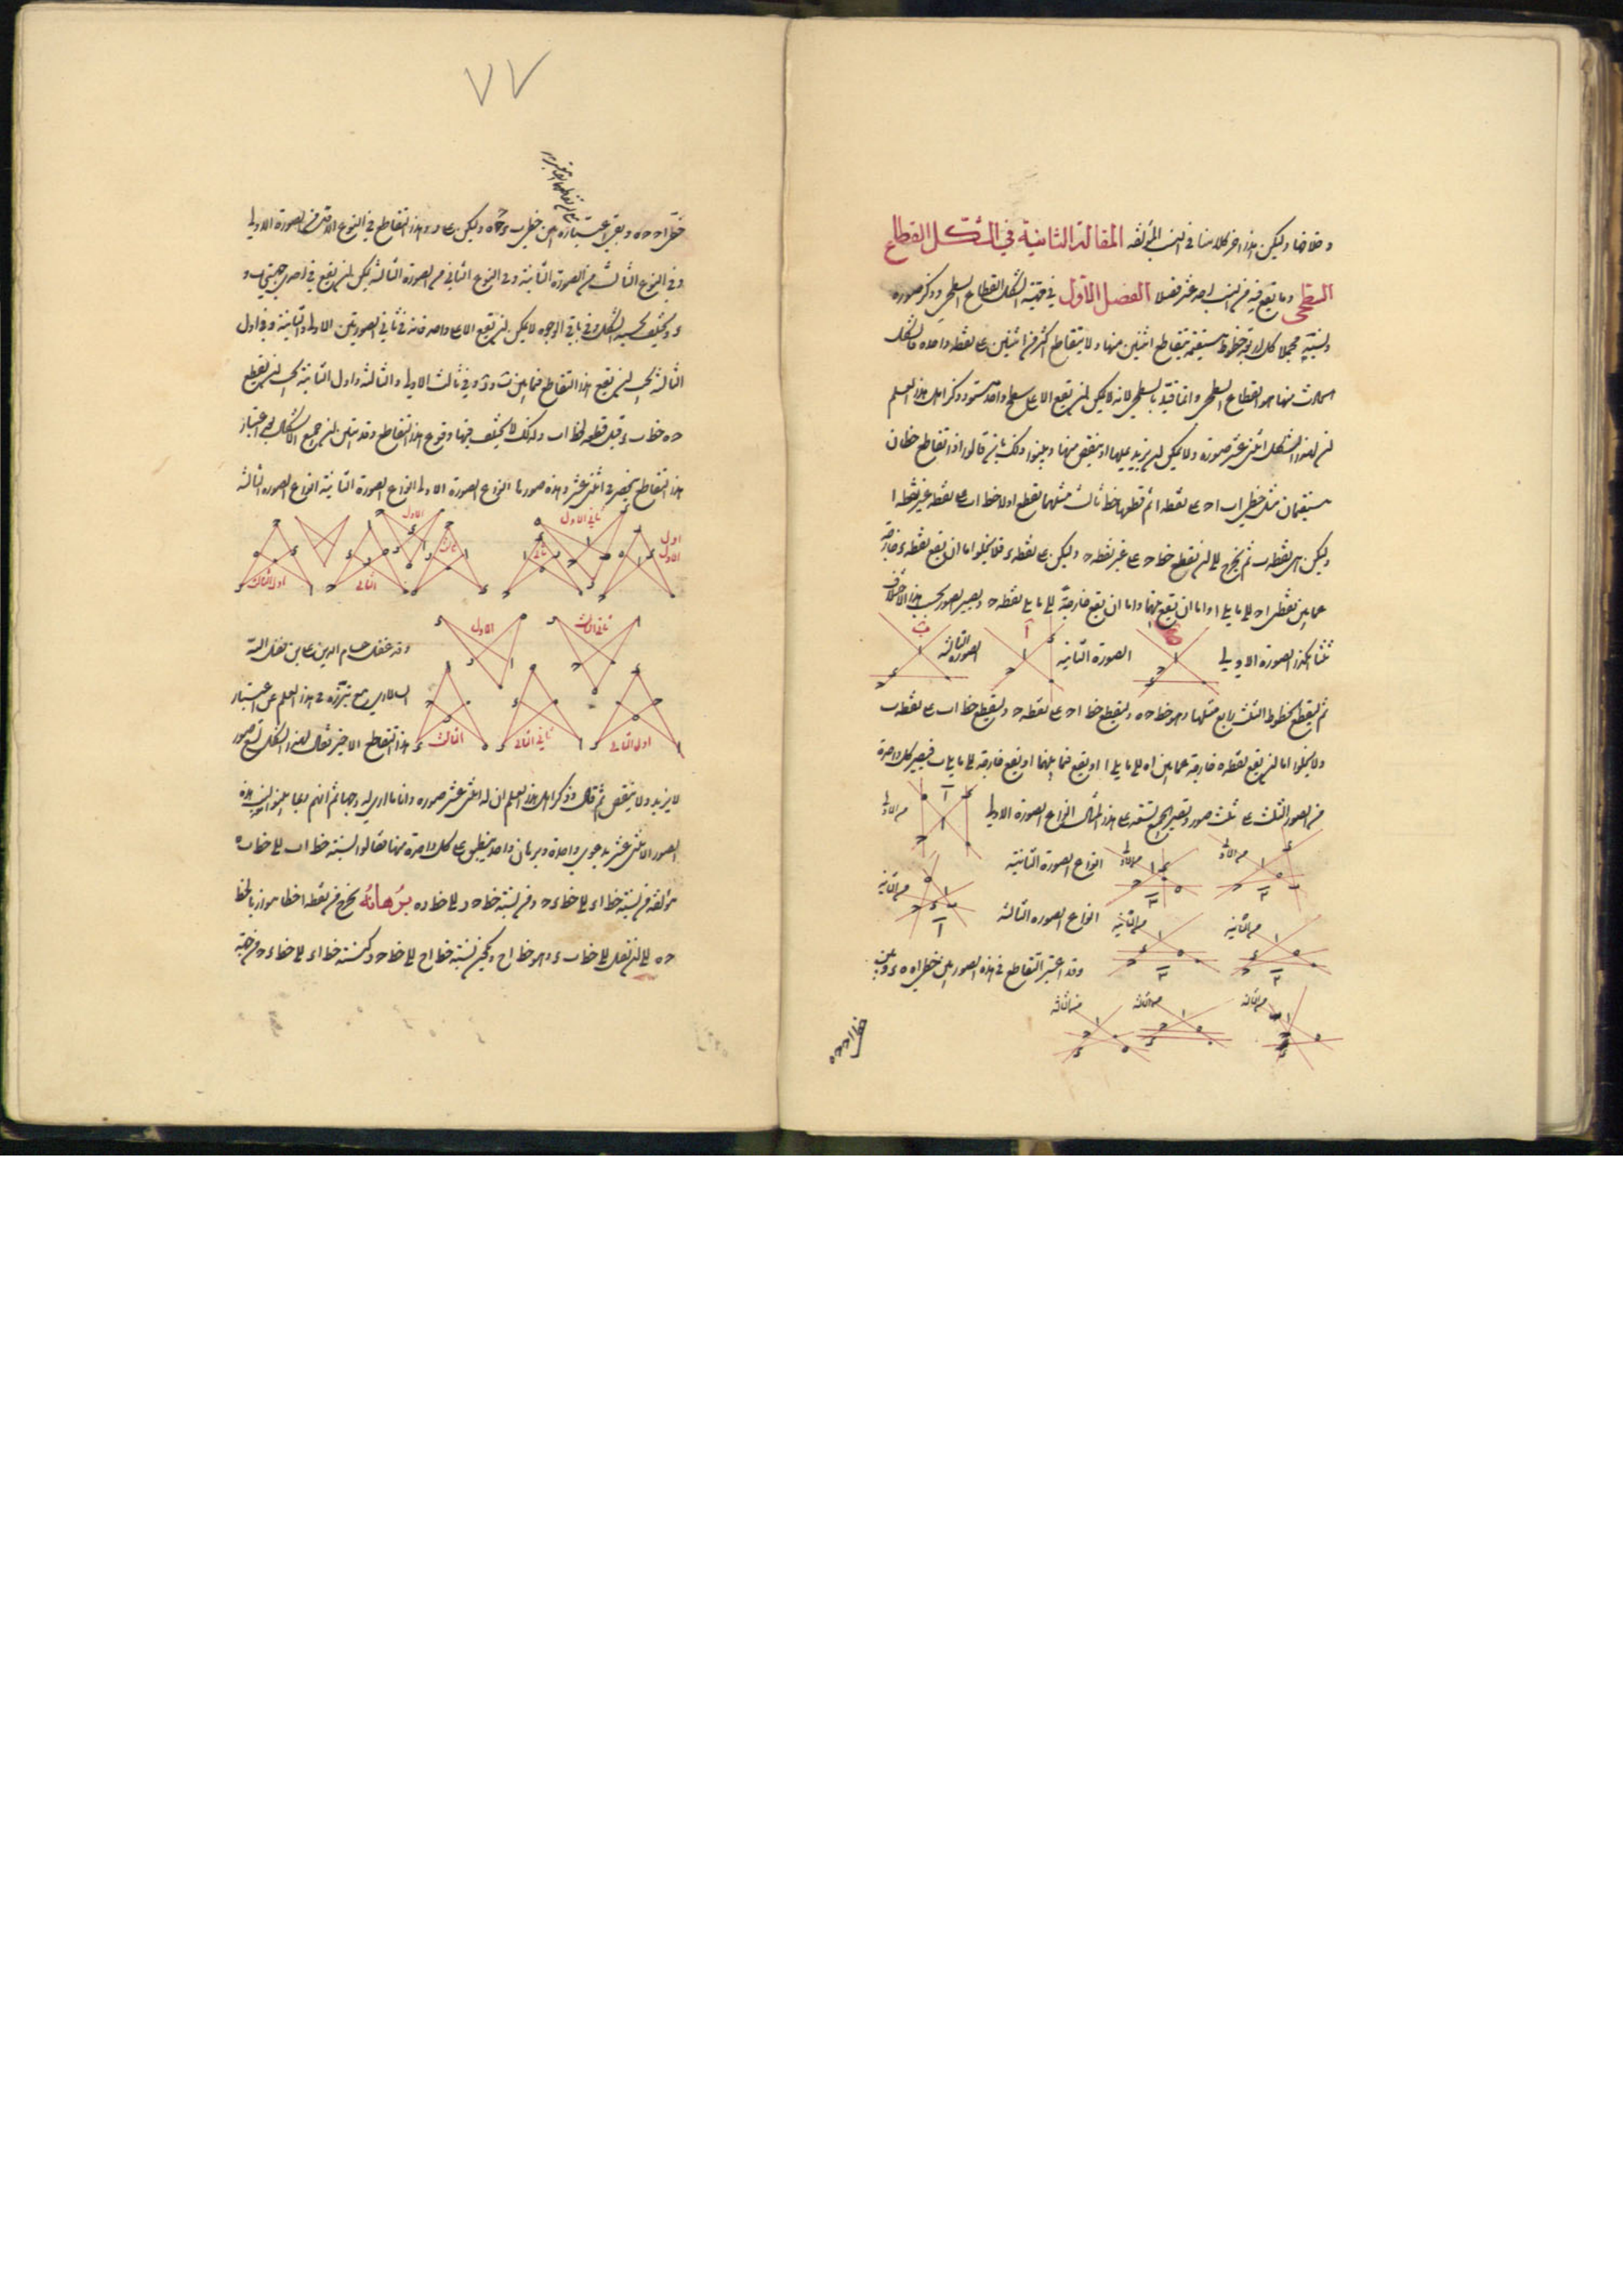 وخلافها وليكن هذا اخر كلامنا في النسب المؤلفه المقالة الثانية في الشكل القطاع
السطحي وما يقع فيه من النسب احد عشر فصلا الفصل الاول في هيئة الشكل القطاع السطحي وذكر صوره
ونسبته مجملا كل اربعة خطوط مستقيمة يتقاطع اثنين منها ولا يتقاطع اكثر من اثنين على نقطه واحده فالشكل
الحادث منها هو القطاع السطحي وانما قيد بالسطحي لانه لا يمكن ان يقع الا على سطح واحد مستو وذكر اهل هذا العلم
ان لهذا الشكل اثنى عشر صورة ولا يمكن ان يزيد عليها او ينقص منها وبينوا ذلك بان قالوا اذا تقاطع خطان
مستقيمان مثل خطي اب اح على نقطه ا ثم قطعهما خط ثالث مثلهما يقطع اولا خط اب على نقطه غير نقطه ا
وليكن هى نقطه ب ثم يخرج الى ان يقطع خط اح على غير نقطه ح وليكن على نقطه ء فلا يخلوا اما ان يقع نقطه ء خارجة
عما بين نقطتى اح الى ما يلى ا واما ان يقع بينهما واما ان يقع خارجة الى ما يلى نقطه ح ويصير الصور بحسب هذا الاختلاف
ثلثا هكذا الصورة الاولى
الصورة الثانيه
الصورة الثالثه
ثم ليقطع الخطوط الثلث رابع مثلها وهو خط ح ه وليقطع خط اح على نقطه ح وليقطع خط اب على نقطه ب
ولا يخلوا اما ان يقع نقطه ه خارجة عما بين اه الى ما يلى ا او يقع فيما بينهما او يقع خارجة الى ما يلى ب فيصير كل واحدة
من الصور الثلث على ثلث صور ويصير الجميع تسعه على هذا المثال انواع الصورة الاولى
من الاولى
من الاولى
من الاولى
انواع الصورة الثانية
من الثانيه
من الثانيه
من الثانيه
انواع الصوره الثالثه
وقد اعتبر التقاطع في هذه الصور بين خطى اه ه ء وبين
من الثالثه
من الثالثه
من الثالثه
خطى اح ح ه
٧٧
خطى اح ح ه وبقى اعتباره بين خطى ب ء ح ه وليكن على ر وهذا التقاطع في النوع الاول من الصورة الاولى
وفي النوع الثالث من الصورة الثانية وفي النوع الثاني من الصورة الثالثة يمكن ان يقع في احدى جهتي ب و
ء ويختلف بحسبه الشكل وفي باقي الوجوه لا يمكن ان يقع الا على واحد فانه في ثاني الصورتين الاولى والثانية وفي اول
الثالثة يجب ان يقع هذا التقاطع فيما بين ب و ء وفي ثالث الاولى والثالثة واول الثانية يجب ان يقطع
ح ه خط ب ء قبل قطعه لخط اب ولذلك لا يختلف فيها وقوع هذا التقاطع وقد تبين ان جميع الاشكال بحسب اعتبار
هذا التقاطع ينحصر في اثنى عشر وهذه صورها انواع الصورة الاولى انواع الصورة الثانية انواع الصورة الثالثه
اول الاول
ثاني الاول
ثالث
الاول
الثاني
اول الثالث
ثاني الثالث
الاول
اول الثاني
ثاني الثاني
الثالث
وقد غفل حسام الدين على بن فضل الله
السالار مع تبرزه في هذا العلم عن اعتبار
هذا التقاطع الاخير فقال لهذا الشكل تسع صور
لا يزيد ولا ينقص ثم قال وذكر اهل هذا العلم ان له اثنى عشر صورة وانا ما ارى له وجها ثم انهم لما بينوا ان هذه
الصور الاثنى عشر بدعوى واحدة وبرهان واحد ينطبق على كل واحدة منها فقالوا نسبة خط اب الى خط ب ه
مؤلفه من نسبة خط اء الى خط ء ح ومن نسبة خط ح ر الى خط ر ه برهانه نخرج من نقطه ا خطا موازيا لخط
ح ه الى ان نصل الى خط ب ء وهو خط اح ويكون نسبة خط اح الى خط ح ر كنسبة خط اء الى خط ء ح ومن جهة